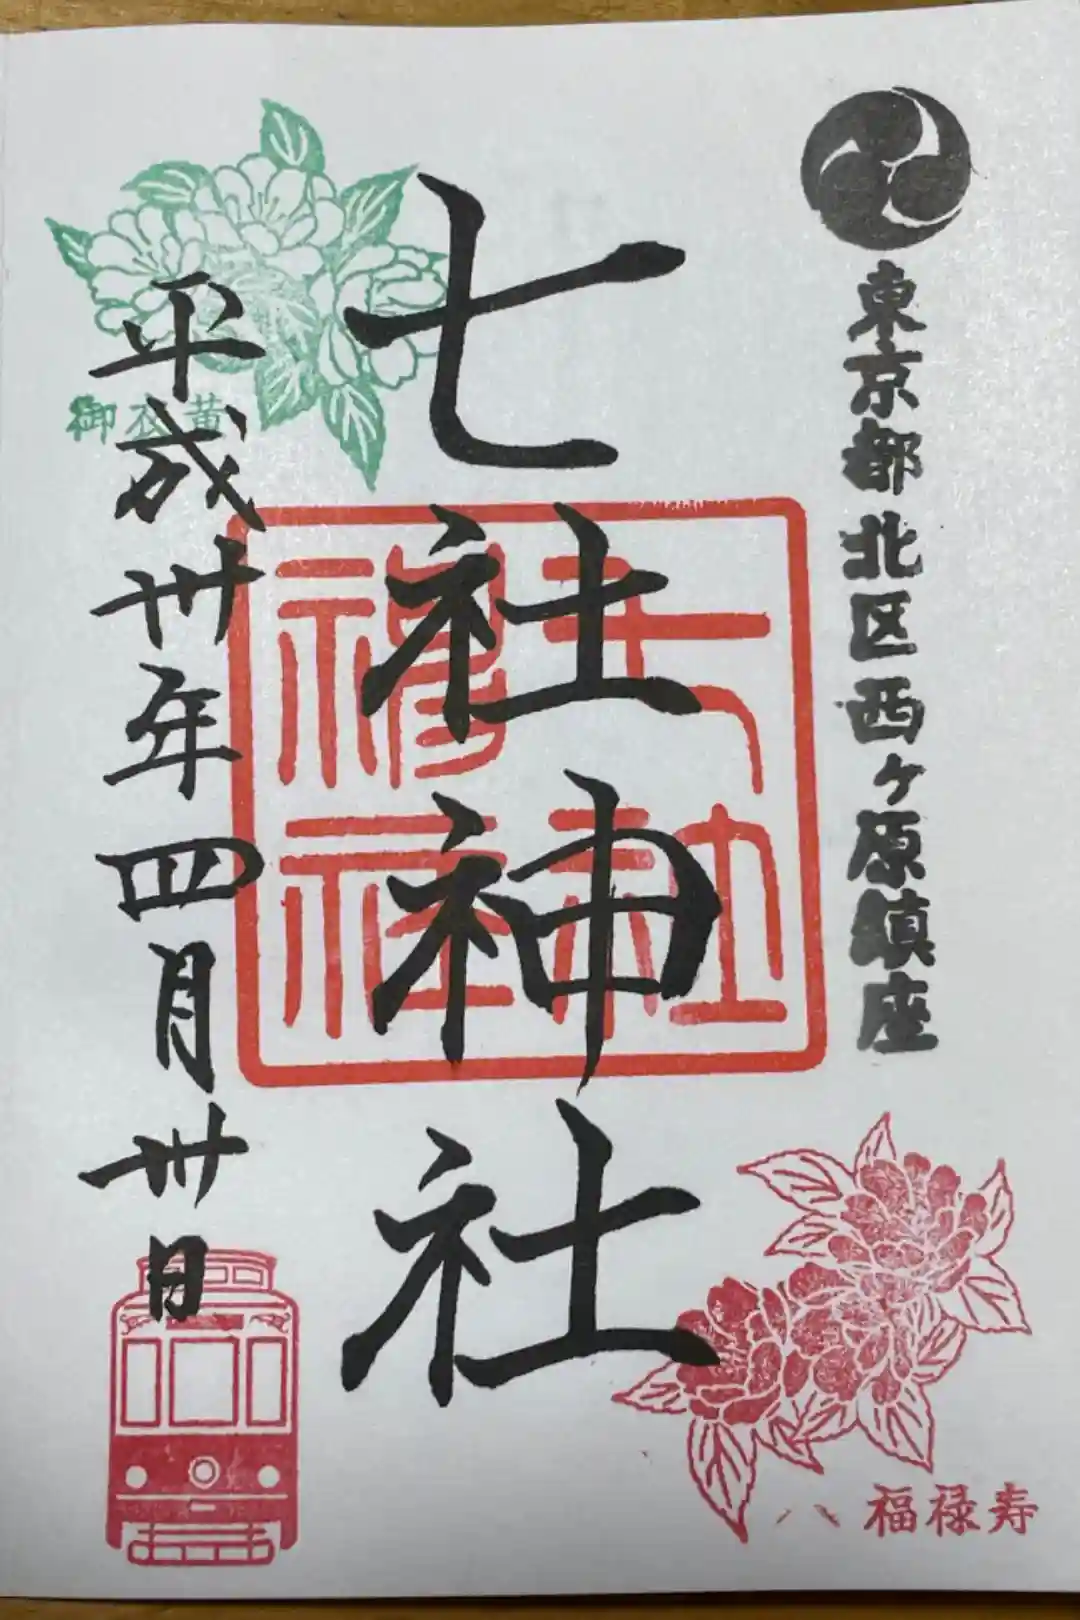 東京都北区西ヶ原鎮座
七社神社
平成卅年四月卅日
御衣黄
福禄寿